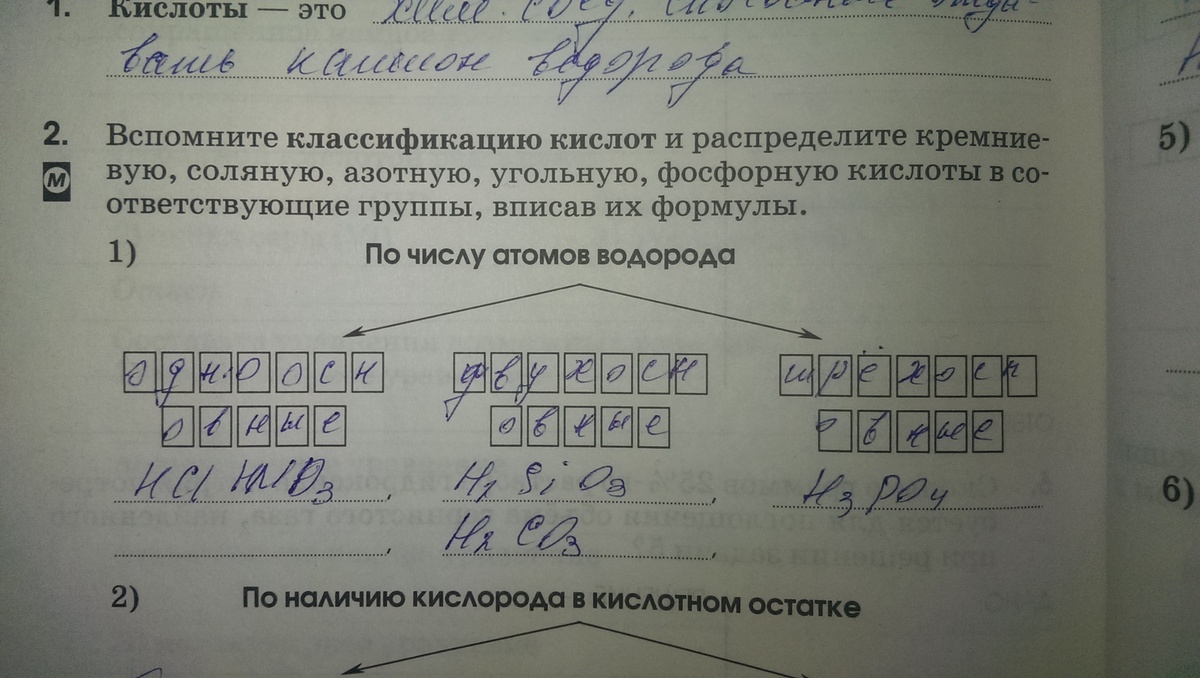 1. Кислоты — это хим. соед. способные отда-
вать катион водорода
2. Вспомните классификацию кислот и распределите кремние-
М вую, соляную, азотную, угольную, фосфорную кислоты в со-
ответствующие группы, вписав их формулы.
1) По числу атомов водорода
одноосн двухосн трёхосн
овные овные овные
HCl HNO3, H2SiO3, H3PO4
, H2CO3,
2) По наличию кислорода в кислотном остатке
5)
6)